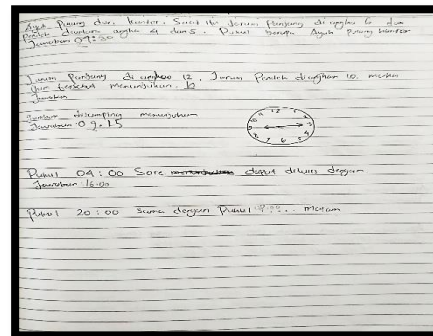 Ayah Pulang dari kantor. Saat itu Jarum Panjang di angka 6 dan
Pendek diantara angka 4 dan 5. Pukul berapa Ayah pulang kantor
Jawaban 04:30
Jarum Panjang di angka 12, Jarum Pendek diangka 10. maka
Jam tersebut menunjukan. 10
Jawaban
Gambar disamping menunjukan
Jawaban 09.15
Pukul 04:00 Sore dapat ditulis dengan
Jawaban 16.00
Pukul 20:00 Sama dengan Pukul malam